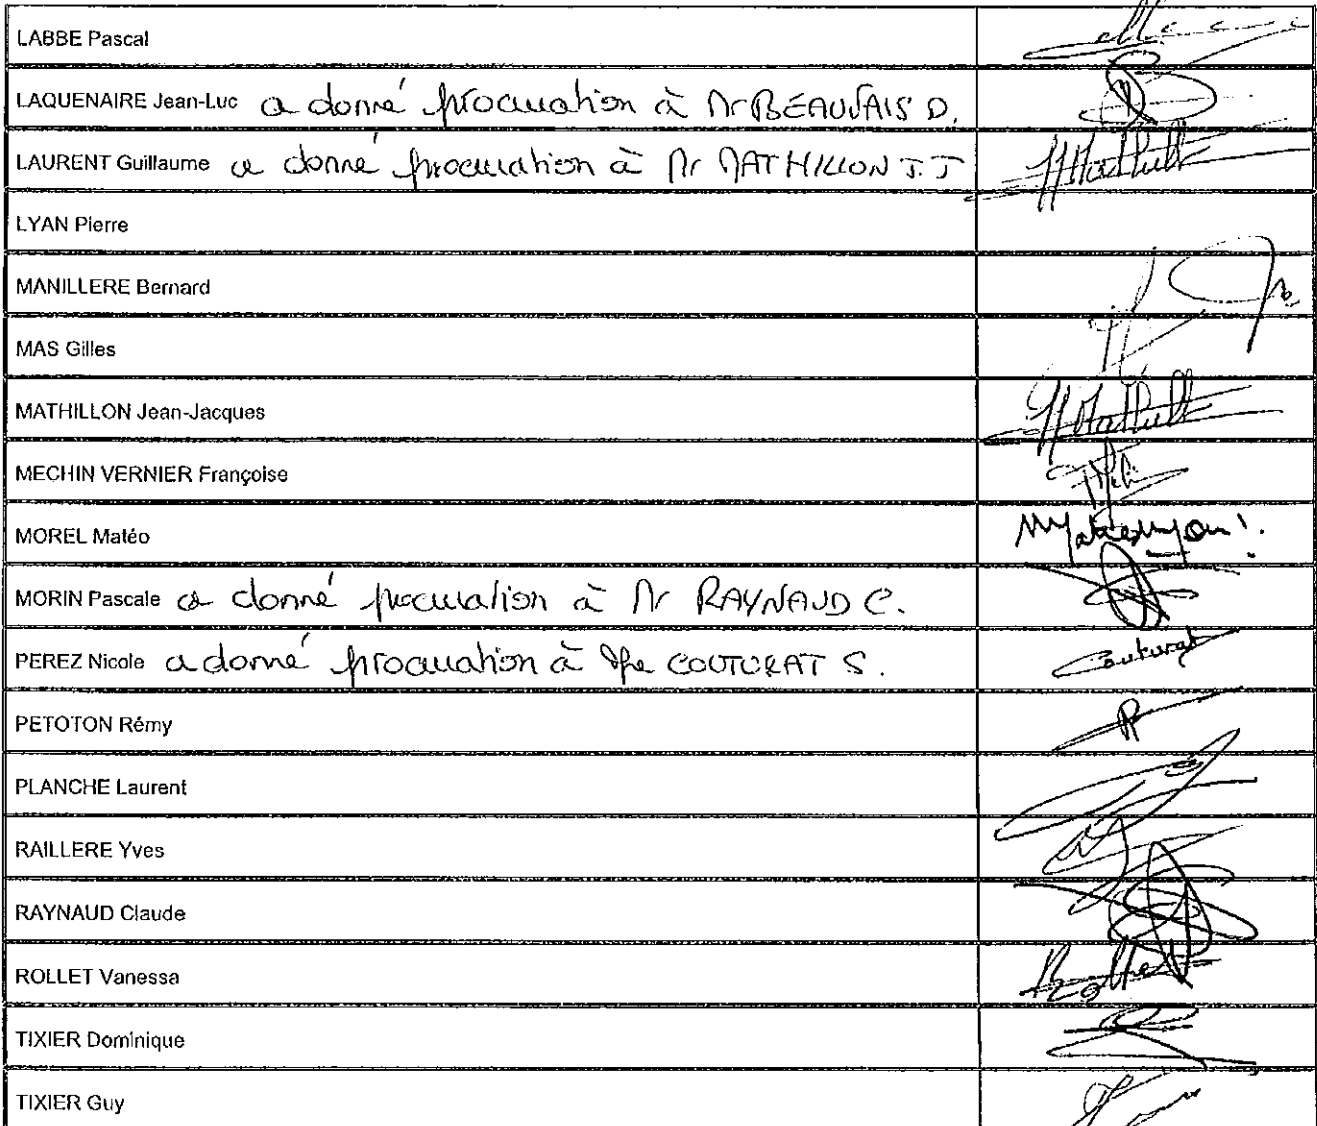 LABBE Pascal
LAQUENAIRE Jean-Luc a donné procuration à Mr BEAUVAIS D.
LAURENT Guillaume a donné procuration à Mr MATHILLON J.J
LYAN Pierre
MANILLERE Bernard
MAS Gilles
MATHILLON Jean-Jacques
MECHIN VERNIER Françoise
MOREL Matéo
MORIN Pascale a donné procuration à Mr RAYNAUD C.
PEREZ Nicole a donné procuration à Mme COUTURAT S. Couturat
PETOTON Rémy
PLANCHE Laurent
RAILLERE Yves
RAYNAUD Claude
ROLLET Vanessa Rollet
TIXIER Dominique
TIXIER Guy